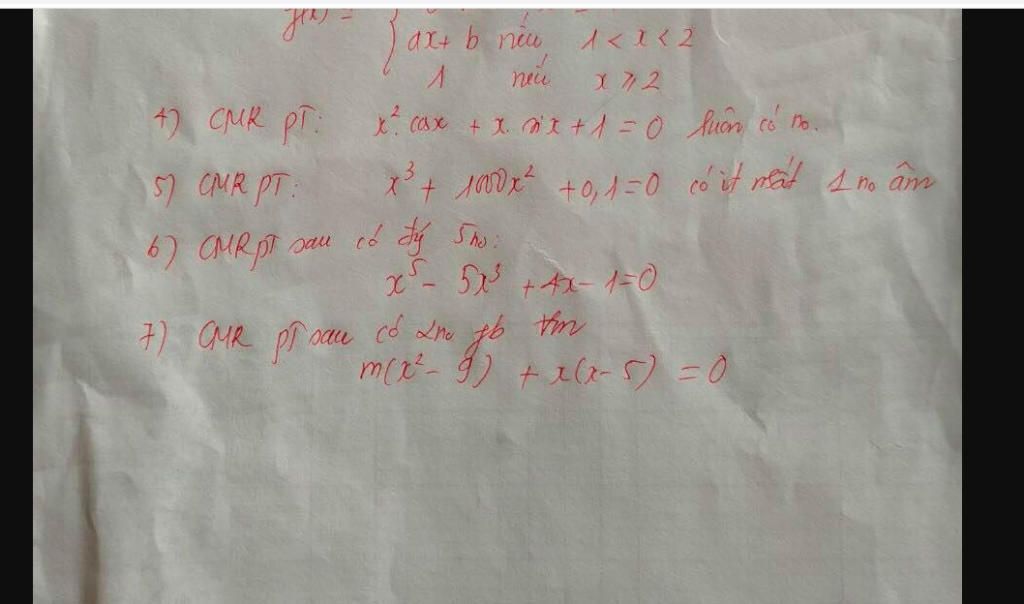 ax + b nếu 1 < x < 2
1 nếu x ⩾ 2
4) CMR PT: x². cosx + x. sinx + 1 = 0 luôn có no.
5) CMR PT: x³ + 1000x² + 0,1 = 0 có ít nhất 1 no âm
6) CMR pt sau có đý 5 no:
x⁵ - 5x³ + 4x - 1 = 0
7) CMR pT sau có 2no pb
m(x² - 9) + x(x - 5) = 0